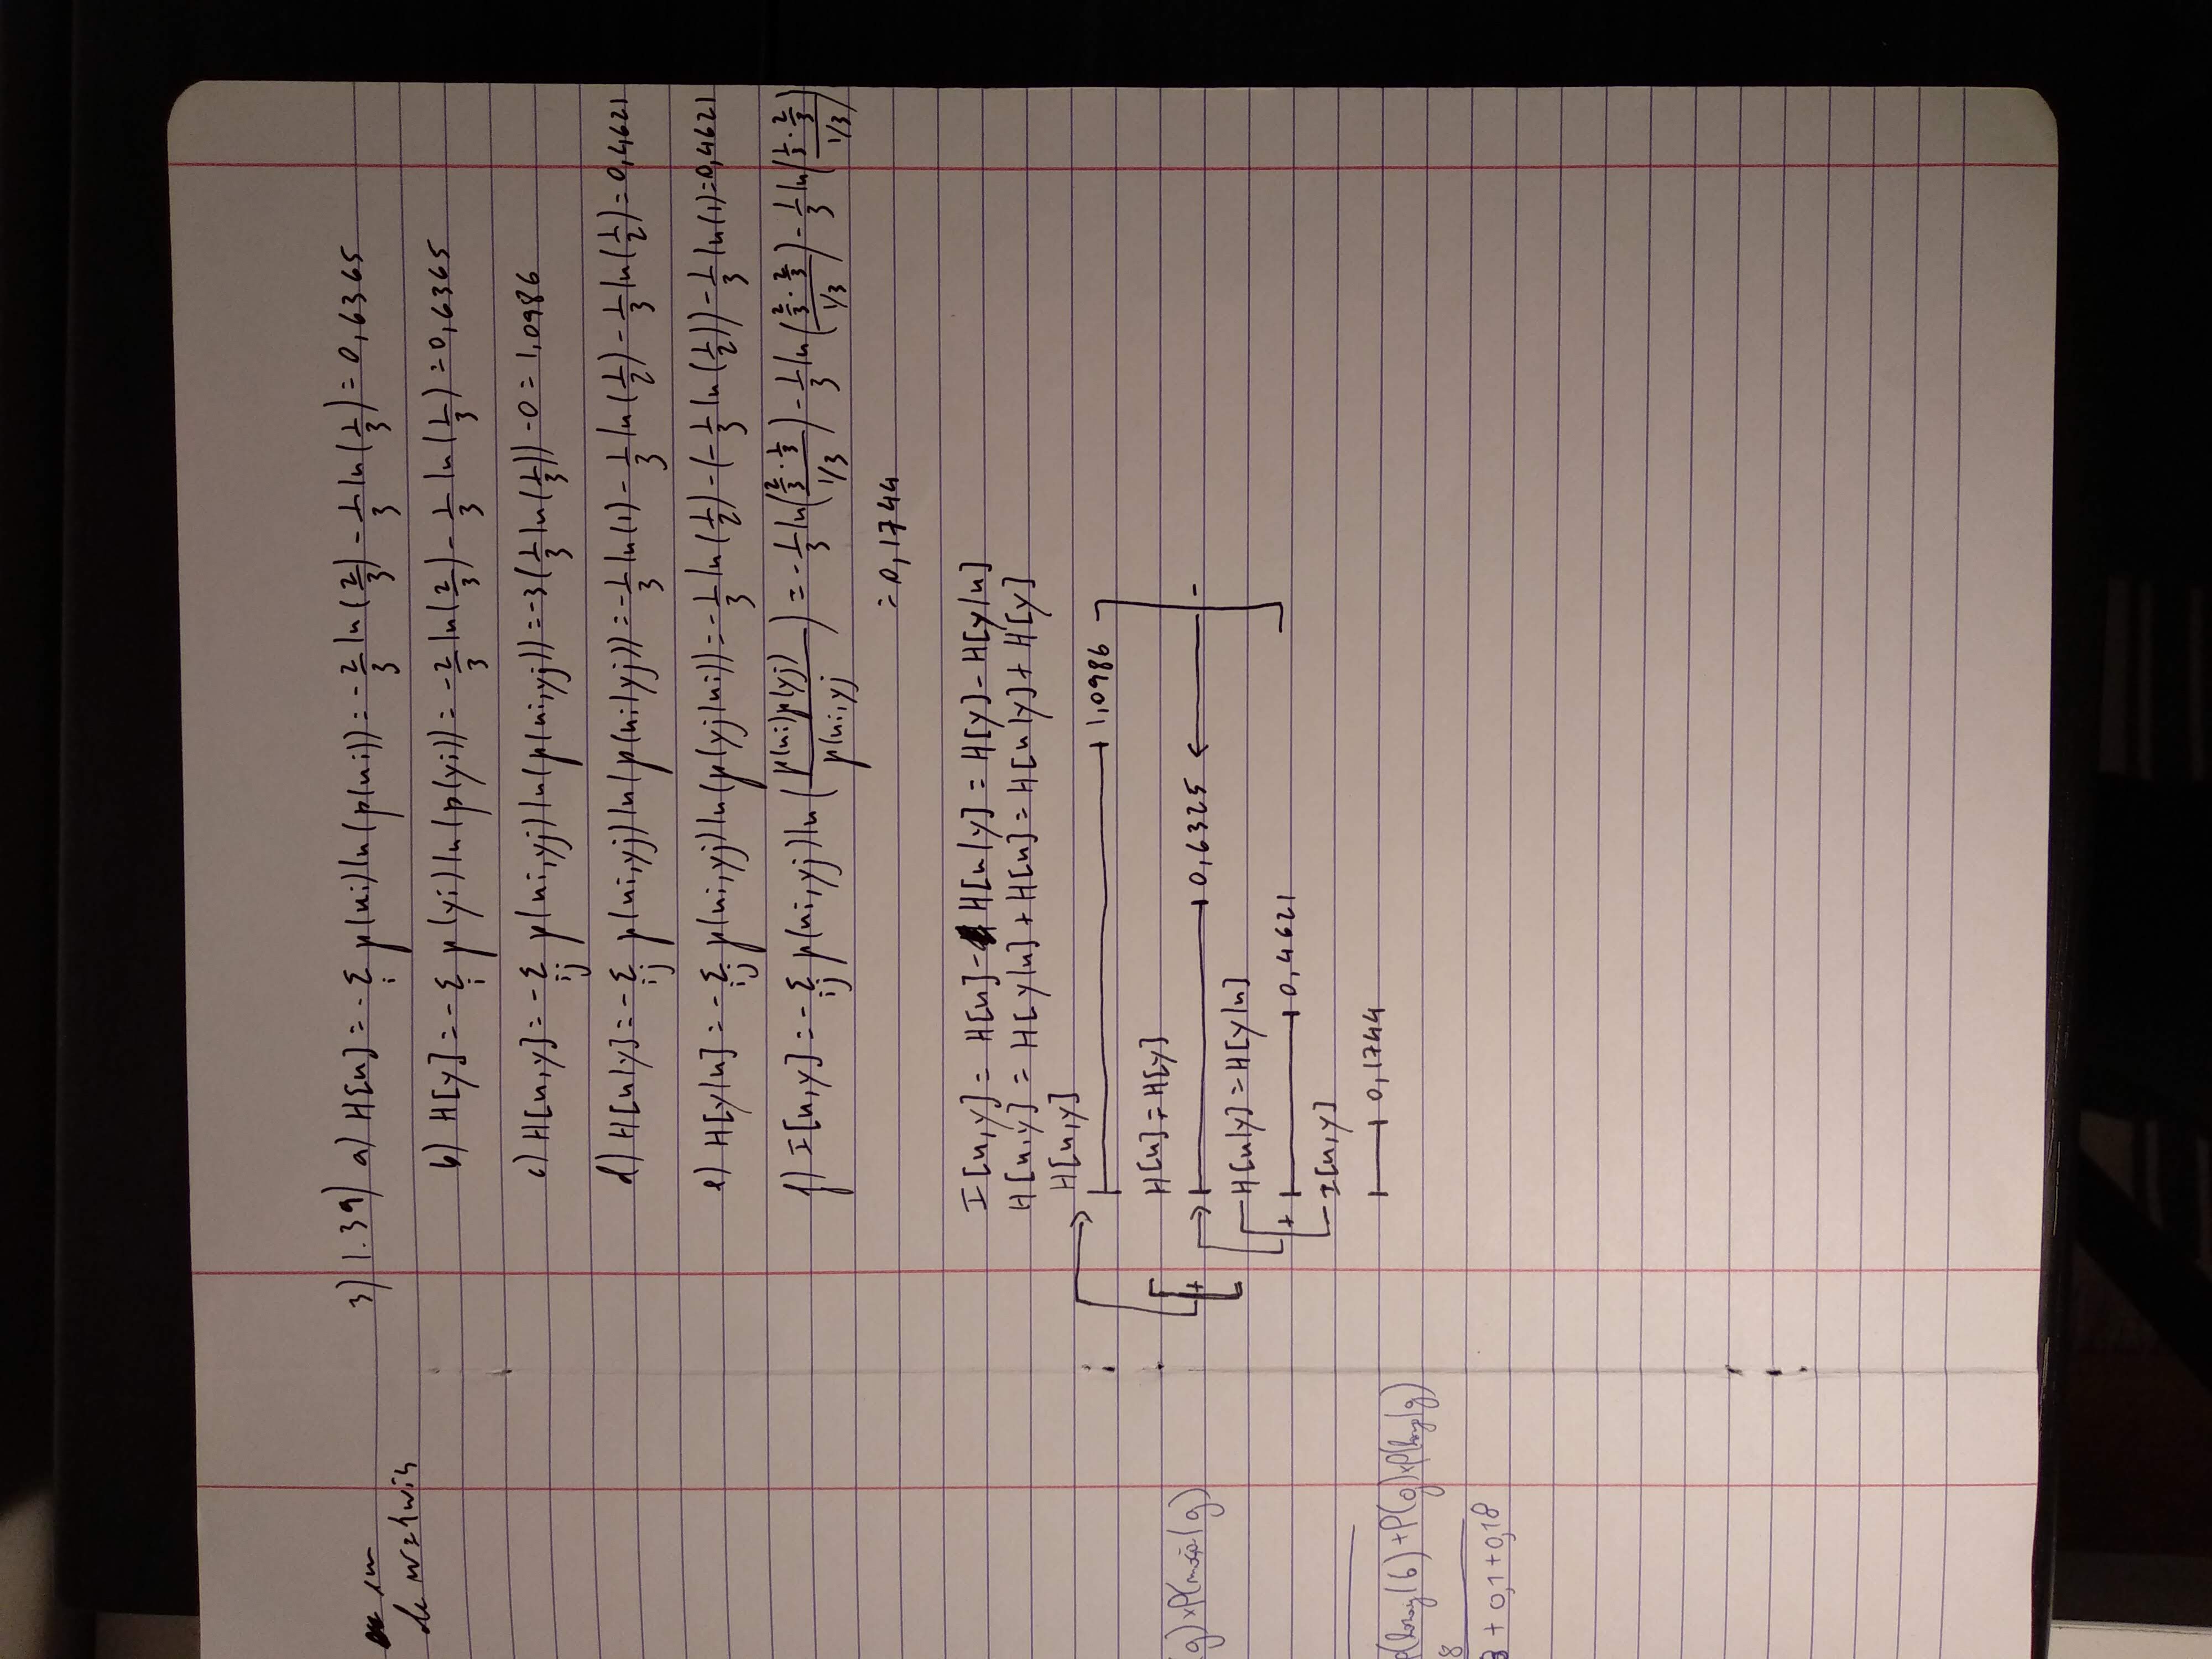 3) 1.39) a) H[x] = -Σ_i p(xi) ln(p(xi)) = -2/3 ln(2/3) - 1/3 ln(1/3) = 0,6365
b) H[y] = -Σ_i p(yi) ln(p(yi)) = -2/3 ln(2/3) - 1/3 ln(1/3) = 0,6365
c) H[x,y] = -Σ_ij p(xi,yj) ln(p(xi,yj)) = -3(1/3 ln(1/3)) - 0 = 1,0986
d) H[x|y] = -Σ_ij p(xi,yj) ln(p(xi|yj)) = -1/3 ln(1) - 1/3 ln(1/2) - 1/3 ln(1/2) = 0,4621
e) H[y|x] = -Σ_ij p(xi,yj) ln(p(yj|xi)) = -1/3 ln(1/2) - (-1/3 ln(1/2)) - 1/3 ln(1) = 0,4621
f) I[x,y] = -Σ_ij p(xi,yj) ln(p(xi)p(yj)/p(xi,yj)) = -1/3 ln(2/3·1/3 / 1/3) - 1/3 ln(2/3·2/3 / 1/3) - 1/3 ln(1/3·2/3 / 1/3)
= 0,1744
I[x,y] = H[x] - H[x|y] = H[y] - H[y|x]
H[x,y] = H[y|x] + H[x] = H[x|y] + H[y]
H[x,y]
1,0986
H[x] = H[y]
+
0,6325
-
H[x|y] = H[y|x]
+
0,4621
I[x,y]
0,1744
g) x P(|g)
P(|b) + P(g) x P(|g)
8
3 + 0,1 + 0,18